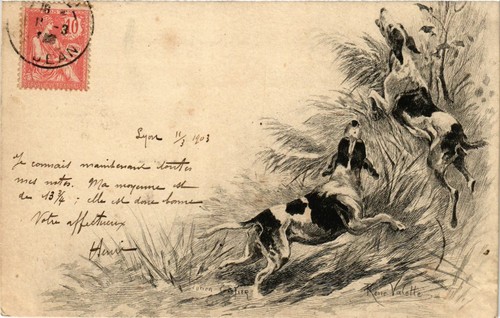 10
Lyon 11/3 1903
Je connais maintenant toutes
mes notes. Ma moyenne est
de 13 3/4 ; elle est donc bonne
Votre affectueux
Henri
René Valette